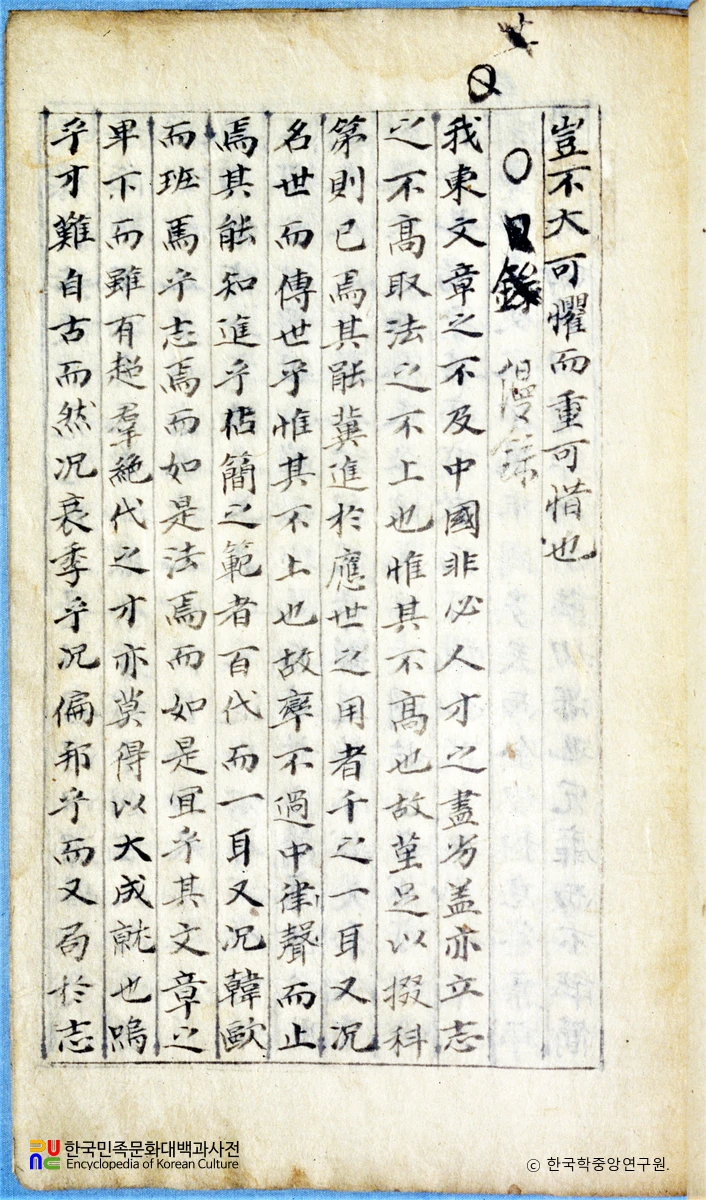 豈不大可懼而重可惜也
○目錄 謾錄
我東文章之不及中國非必人才之盡劣盖亦立志
之不高取法之不上也惟其不高也故堇足以掇科
第則已焉其能冀進於應世之用者千之一耳又况
名世而傳世乎惟其不上也故率不過中律聲而止
焉其能知進乎佔簡之範者百代而一耳又况韓歐
而班馬乎志焉而如是法焉而如是宜乎其文章之
卑下而雖有超羣絶代之才亦莫得以大成就也嗚
乎才難自古而然况衰季乎况偏邦乎而又局於志
한국민족문화대백과사전
Encyclopedia of Korean Culture
© 한국학중앙연구원.